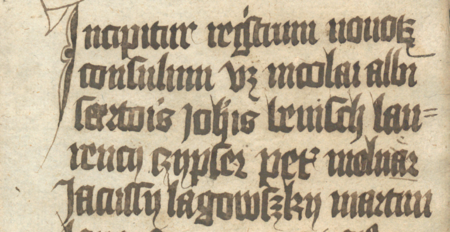 Incipitur regr̃stum novoꝝ
consulum vꝫ nicolai albi
sartoris Joh̃is Lenisch lau=
rency czypser petr̃ molnar
Jacussy lagowszky martini